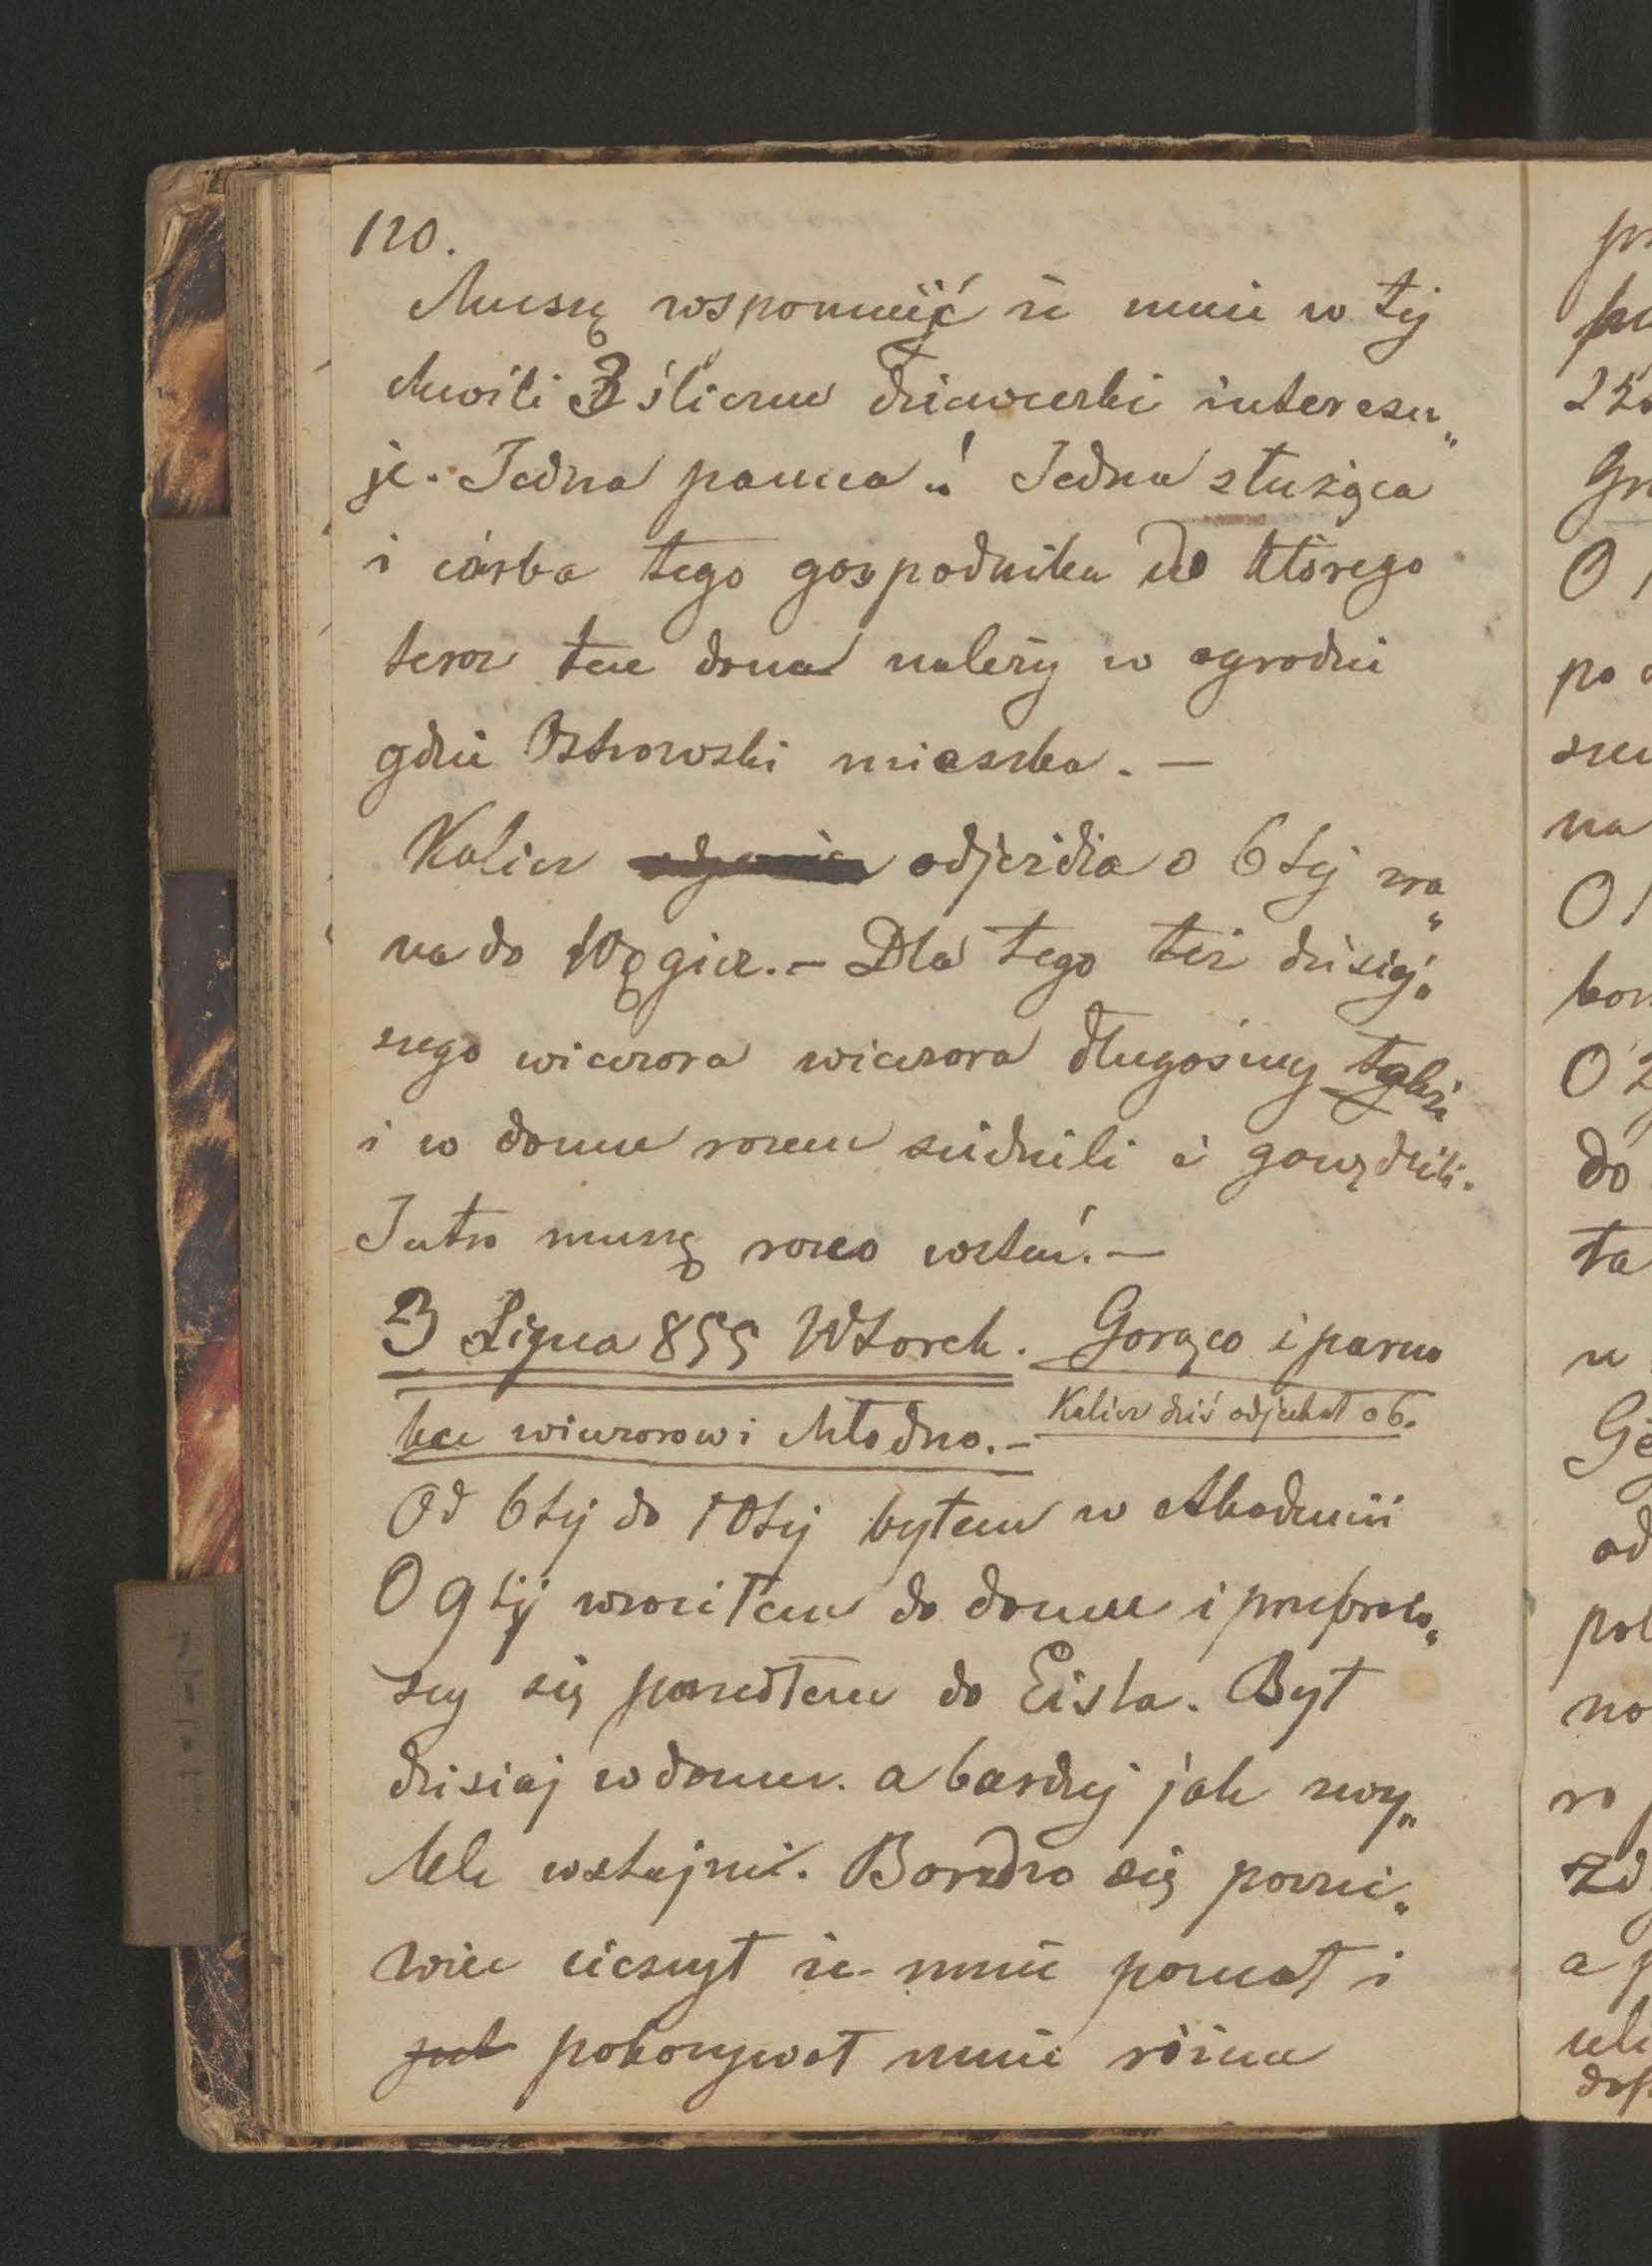 120.
Muszę wspomnieć że mnie w tej
chwili 3 śliczne dziewczki interesu„
je. Jedna panna.! Jedna służąca
i córka tego gospodnika do którego
teraz ten dom należy w ogrodzie
gdzie Ostrowski mieszka. —
Kalicz odjeżdża o 6tej zra„
na do Węgier. — Dla tego też dzisiej„
szego wieczora wieczora długośmy także
i w domu razem siedzieli i gawędzili.
Jutro muszę rano wstać. —
3 Lipca 855 Wtorek. Gorąco i parno
ku wieczorowi chłodno. —
Kalicz dziś odjechał o 6.
Od 6tej do 10tej byłem w Akademii
O 9tej wróciłem do domu i przebraw„
szy się poszedłem do Eisla. Był
dzisiaj w domu. a bardziej jak zwy„
kle uprzejmie. Bardzo się
cieszył że mnie poznał i
pokazywał mnie różne
pr
22
Gr
O 1
po
na
O 1
O 2
do
ta
u
Ge
od
pol
no
ro
zd
a p